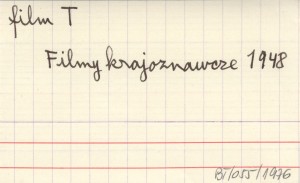 film T
Filmy krajoznawcze 1948
BT/055/1976